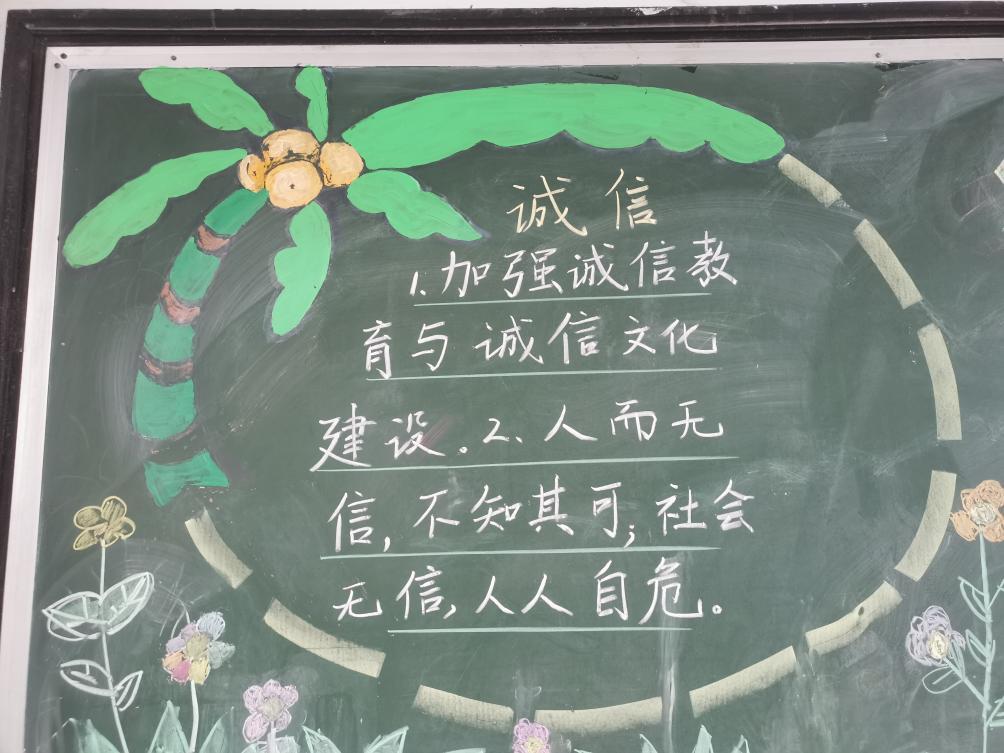 诚信
1.加强诚信教
育与诚信文化
建设。2.人而无
信,不知其可;社会
无信,人人自危。